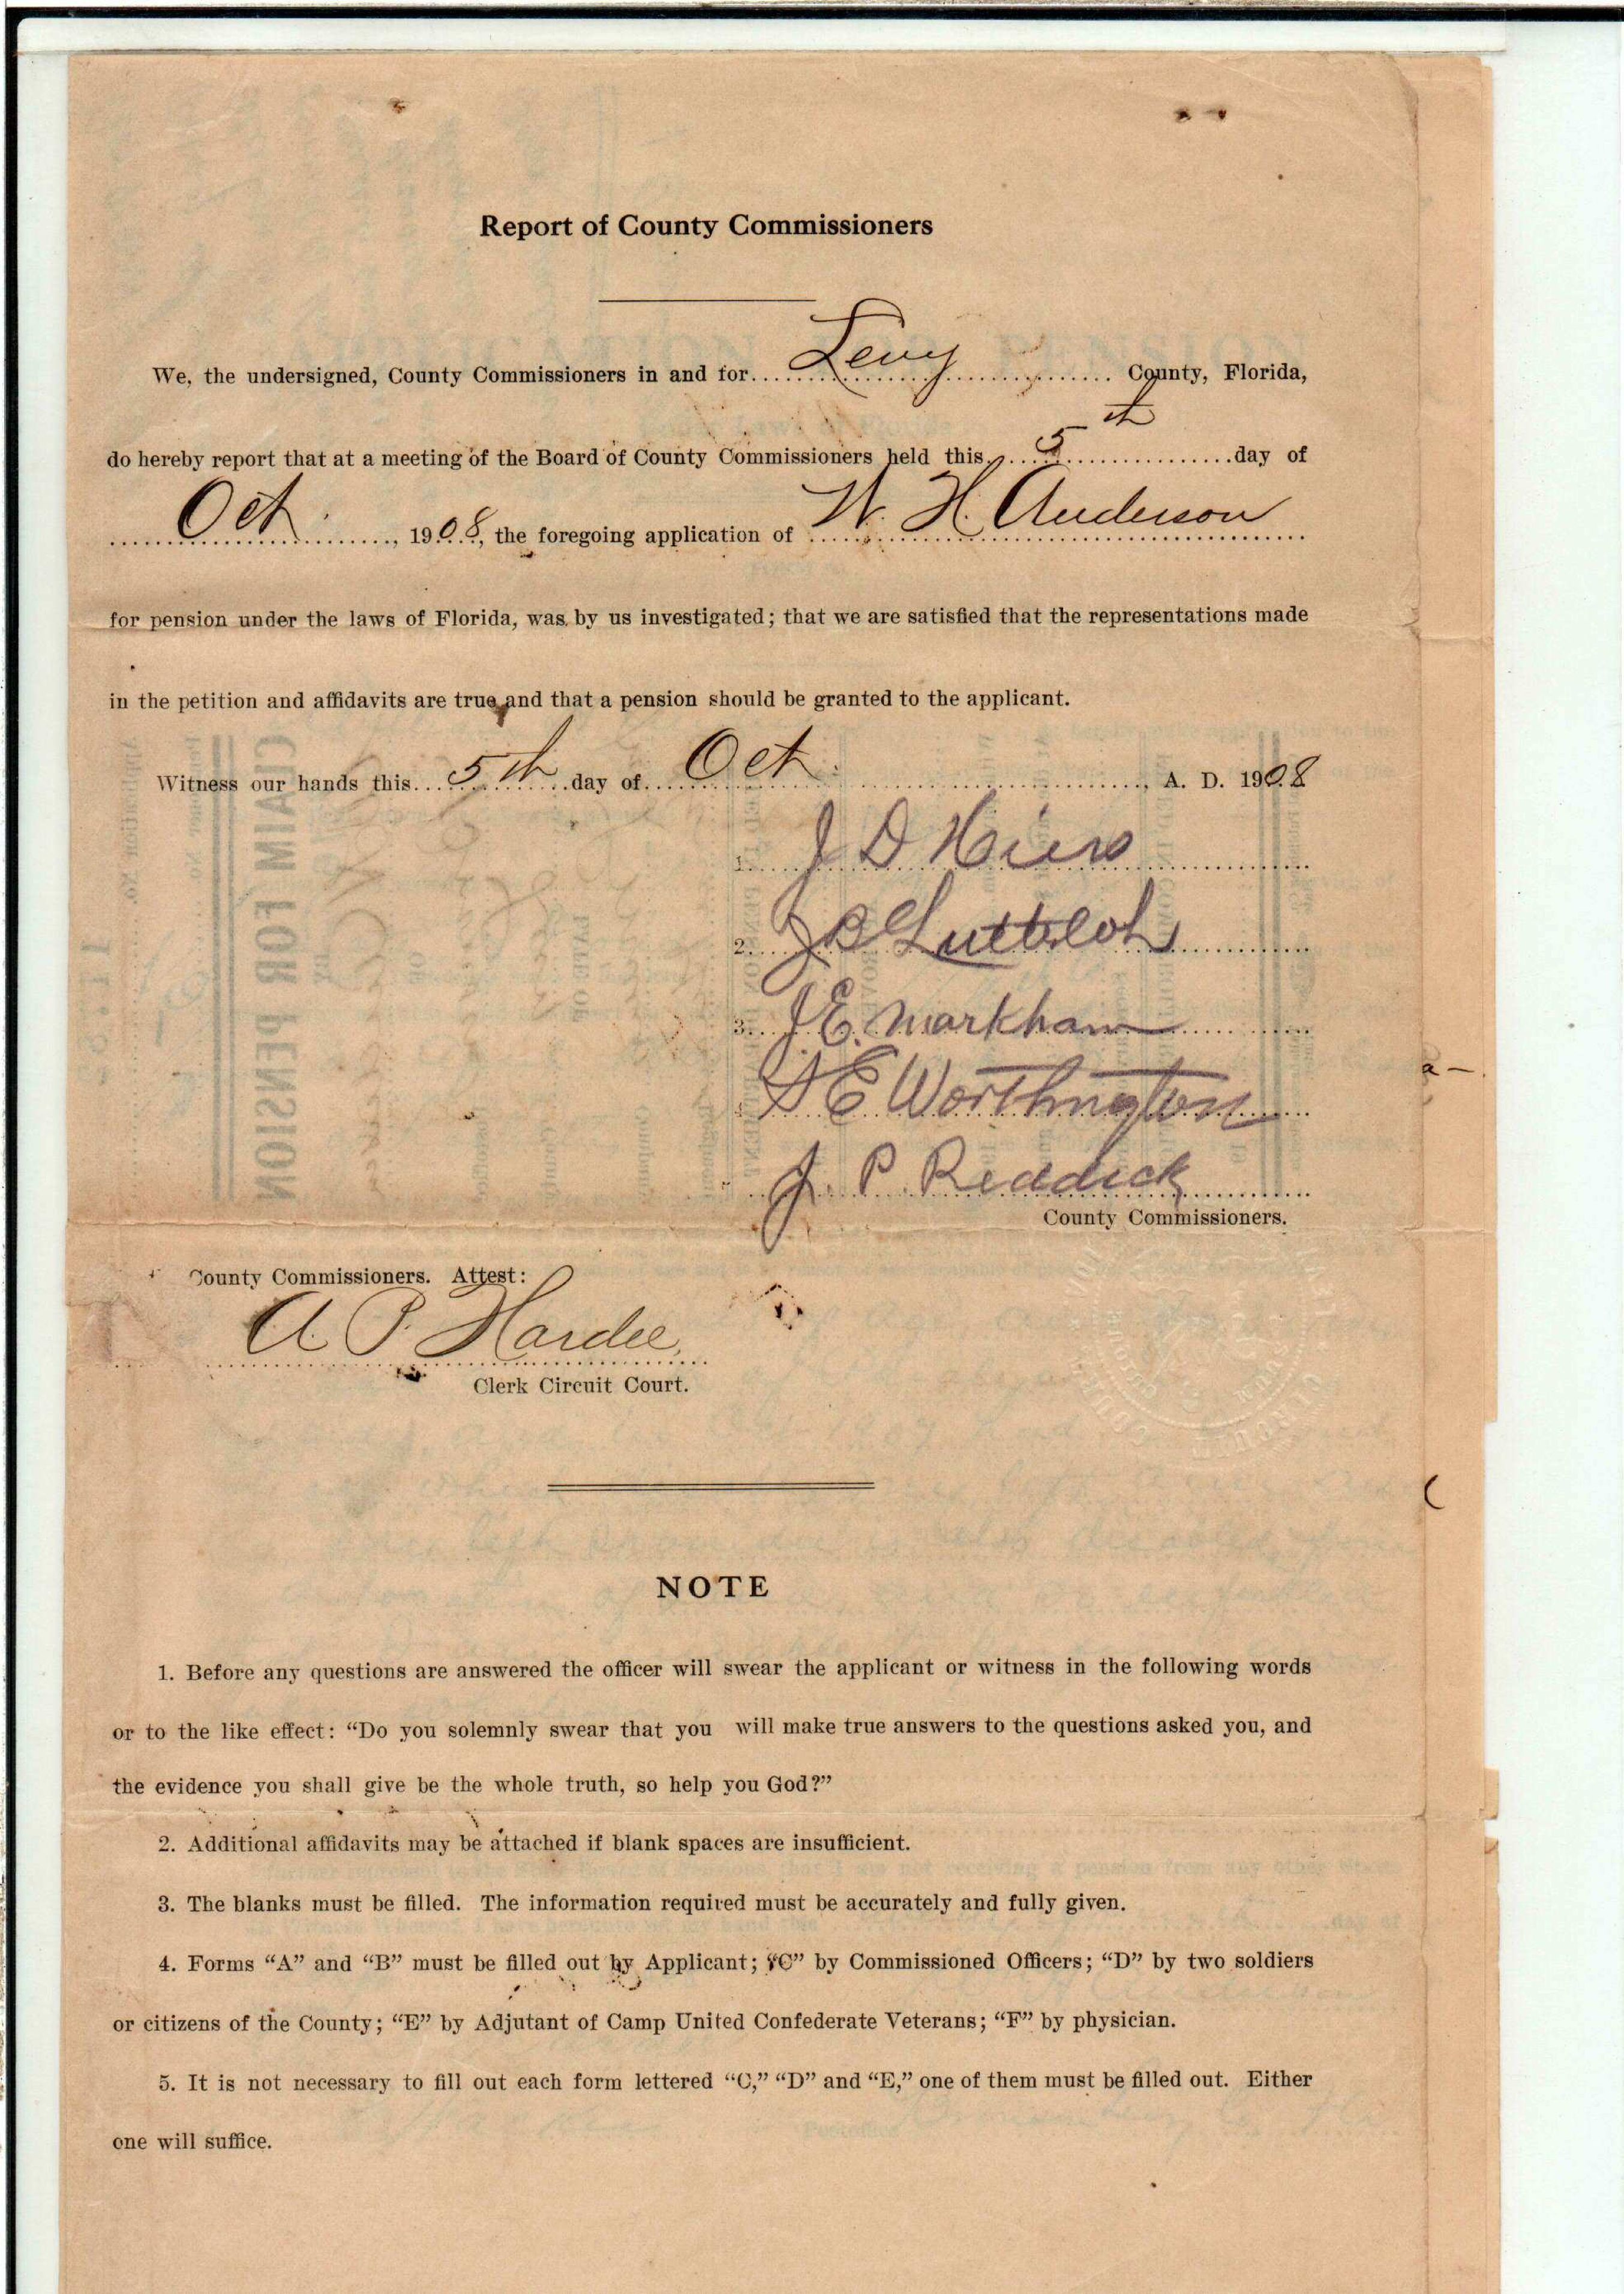 Report of County Commissioners
We, the undersigned, County Commissioners in and for Levy County, Florida,
do hereby report that at a meeting of the Board of County Commissioners held this 5th day of
Oct. , 1908, the foregoing application of W. H. Anderson
for pension under the laws of Florida, was by us investigated; that we are satisfied that the representations made
in the petition and affidavits are true and that a pension should be granted to the applicant.
Witness our hands this 5th day of Oct. , A. D. 1908
1. J D Hiers
2. J B Lutterloh
3. J E. Markham
S E Worthington
J. P. Reddick
County Commissioners.
County Commissioners. Attest:
A. P. Hardee,
Clerk Circuit Court.
NOTE
1. Before any questions are answered the officer will swear the applicant or witness in the following words
or to the like effect: “Do you solemnly swear that you will make true answers to the questions asked you, and
the evidence you shall give be the whole truth, so help you God?”
2. Additional affidavits may be attached if blank spaces are insufficient.
3. The blanks must be filled. The information required must be accurately and fully given.
4. Forms “A” and “B” must be filled out by Applicant; “C” by Commissioned Officers; “D” by two soldiers
or citizens of the County; “E” by Adjutant of Camp United Confederate Veterans; “F” by physician.
5. It is not necessary to fill out each form lettered “C,” “D” and “E,” one of them must be filled out. Either
one will suffice.